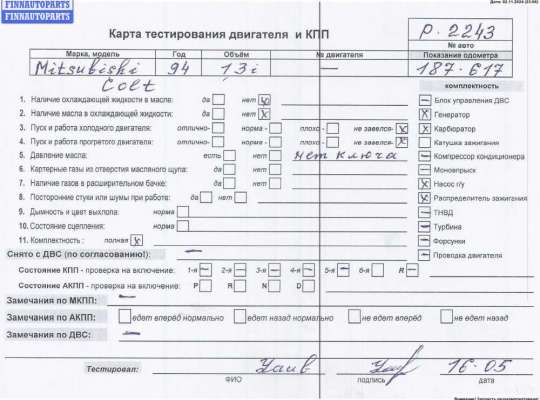 FINNAUTOPARTS
FINNAUTOPARTS
Карта тестирования двигателя и КПП
P. 2243
№ авто
Марка, модель Год Объём № двигателя Показание одометра
Mitsubishi 94 1,3i — 187.617
Colt
комплектность
1. Наличие охлаждающей жидкости в масле: да нет x
2. Наличие масла в охлаждающей жидкости: да нет x
3. Пуск и работа холодного двигателя: отлично- норма - плохо - не завелся- x
4. Пуск и работа прогретого двигателя: отлично- норма - плохо - не завелся- x
5. Давление масла: есть нет нет ключа
6. Картерные газы из отверстия масляного щупа: да нет
7. Наличие газов в расширительном бачке: да нет
8. Посторонние стуки или шумы при работе: да нет
9. Дымность и цвет выхлопа: норма
10. Состояние сцепления: норма
11. Комплектность : полная x
— Блок управления ДВС
x Генератор
x Карбюратор
Катушка зажигания
— Компрессор кондиционера
— Моновпрыск
x Насос г/у
x Распределитель зажигания
— ТНВД
— Турбина
— Форсунки
— Проводка двигателя
Снято с ДВС (по согласованию!): —
Состояние КПП - проверка на включение: 1-я — 2-я — 3-я — 4-я — 5-я — 6-я R —
Состояние АКПП - проверка на включение: P R N D
Замечания по МКПП: —
Замечания по АКПП: едет вперёд нормально едет назад нормально не едет вперёд не едет назад
Замечания по ДВС: —
Тестировал: 16-05
ФИО подпись дата